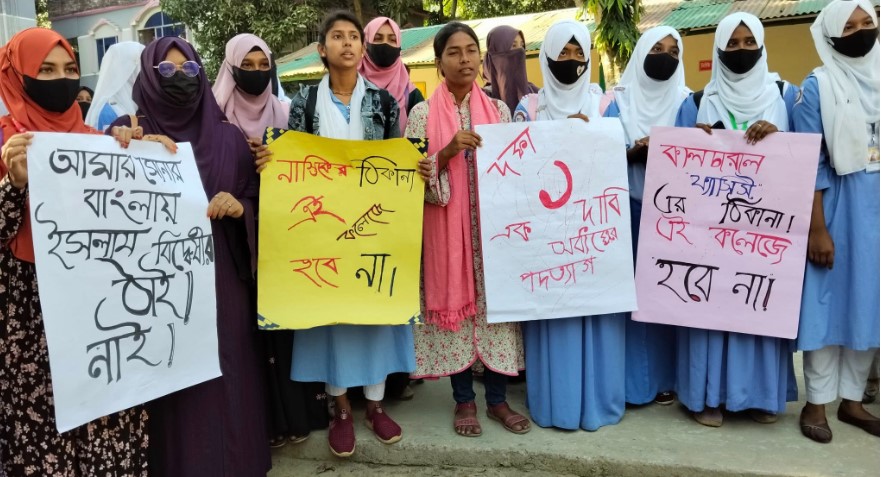 আমার সোনার
বাংলায়
ইসলাম বিদ্বেষীর
ঠাই!
নাই!
নাস্তিকের ঠিকানা
এই কলেজে
হবে না।
দফা ১
এক দাবি
অধ্যক্ষের
পদত্যাগ
কালচারাল
"ফ্যাসিস্ট"
এর ঠিকানা!
এই কলেজে
হবে না!